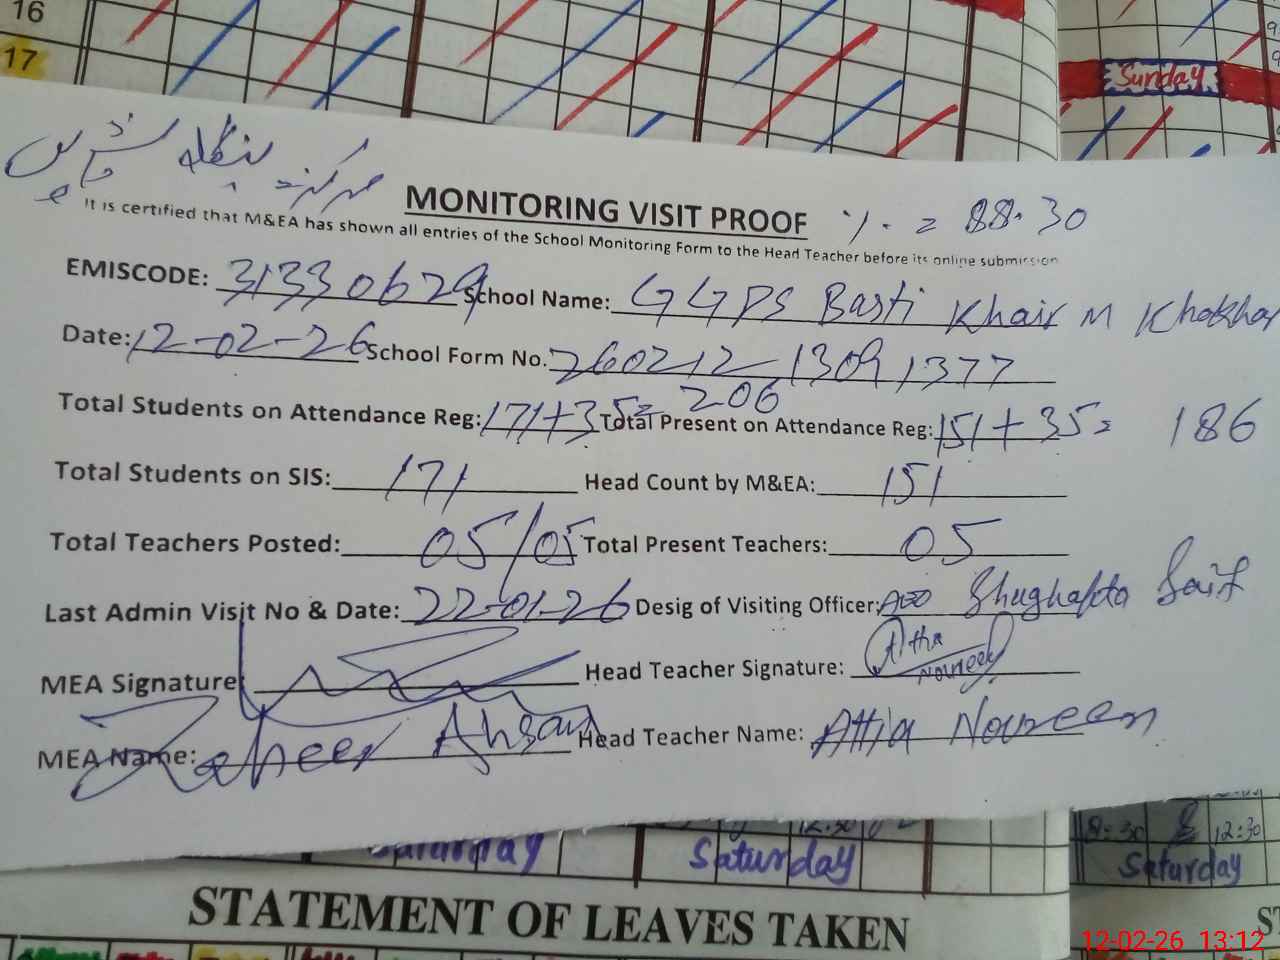 16
17
Sunday
مرکز بنگلہ
MONITORING VISIT PROOF %. = 88.30
It is certified that M&EA has shown all entries of the School Monitoring Form to the Head Teacher before its online submission
EMISCODE: 31330629 School Name: GGPS Basti Khair M Khokhar
Date: 12-02-26 School Form No. 260212-13091377
Total Students on Attendance Reg: 171+35= 206 Total Present on Attendance Reg: 151+35= 186
Total Students on SIS: 171 Head Count by M&EA: 151
Total Teachers Posted: 05/05 Total Present Teachers: 05
Last Admin Visit No & Date: 22-01-26 Desig of Visiting Officer: AEO Shughafta Saif
MEA Signature: Head Teacher Signature: Attia Noureen
MEA Name: Zaheer Ahsan Head Teacher Name: Attia Noureen
12:30 8:30 12:30
Saturday Saturday Saturday
STATEMENT OF LEAVES TAKEN ST
12-02-26 13:12